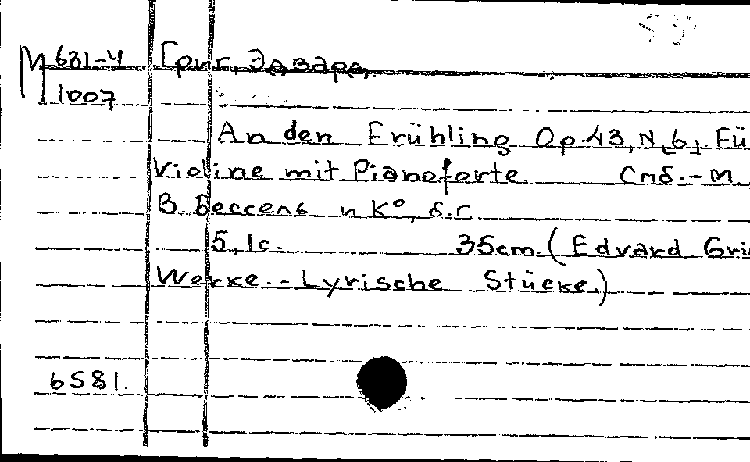 М 681-4 Григ, Эдвард
1007
An den Frühling Op.43, N 6, Fü
Violine mit Pianoforte Спб.-М
В. Бессель и К°, б.г.
5,1с. 35см. (Edvard Gri
Werke.-Lyrische Stücke.)
6581.